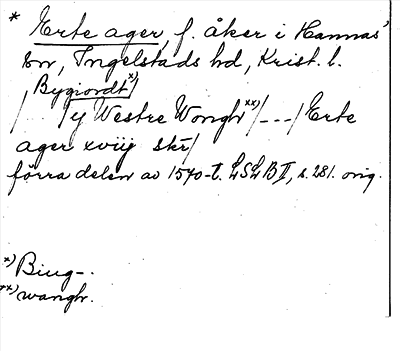 * Erte ager, f. åker i Hannas'
sn, Ingelstads hd, Krist. l.
/Bygiordt*)/
/y Westre Wongh**)/---/Erte
ager xviij skr/
förra delen av 1570-t. LSLB II, s. 281. orig.
*) Biug-.
**) wangh.